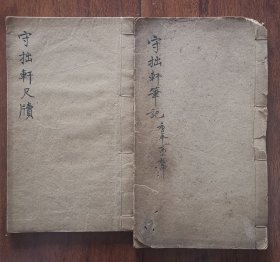 守拙軒尺牘
守拙軒筆記